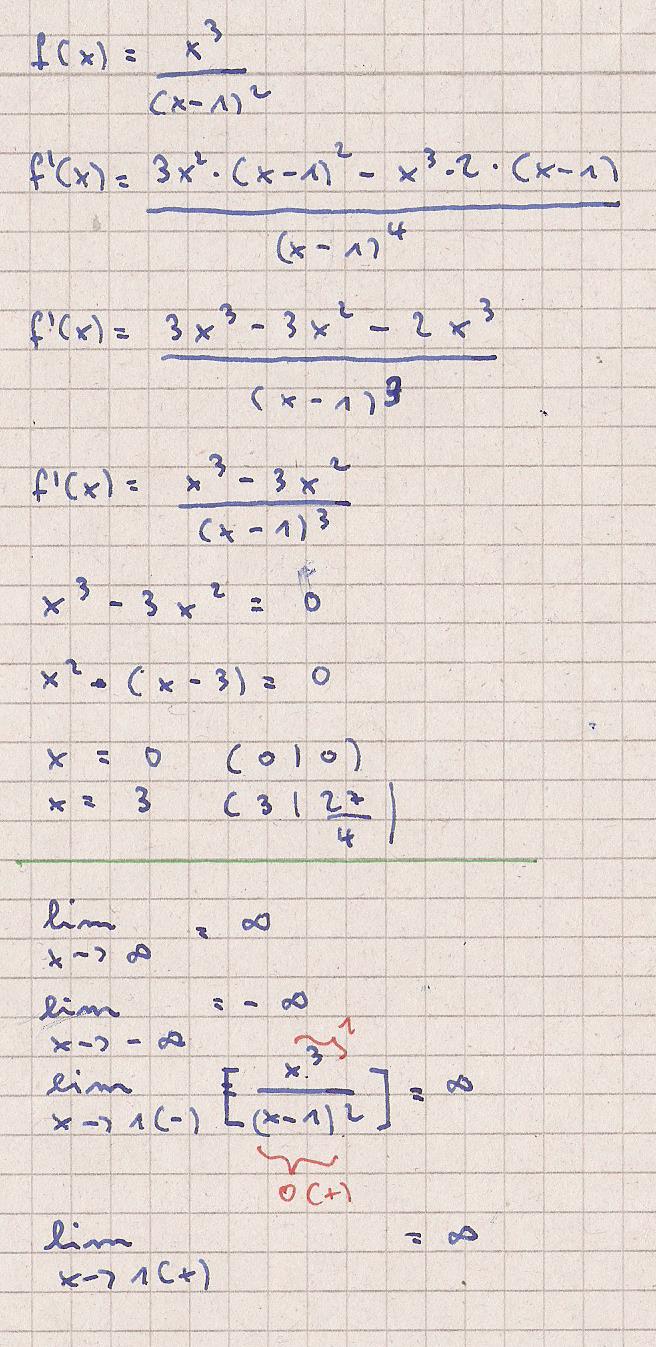 f(x) = x³ / (x-1)²
f'(x) = 3x² · (x-1)² - x³ · 2 · (x-1) / (x-1)⁴
f'(x) = 3x³ - 3x² - 2x³ / (x-1)³
f'(x) = x³ - 3x² / (x-1)³
x³ - 3x² = 0
x² · (x-3) = 0
x = 0 (0|0)
x = 3 (3|27/4)
lim x→∞ = ∞
lim x→-∞ = -∞
1
lim x→1(-) [x³ / (x-1)²] = ∞
0(+)
lim x→1(+) = ∞